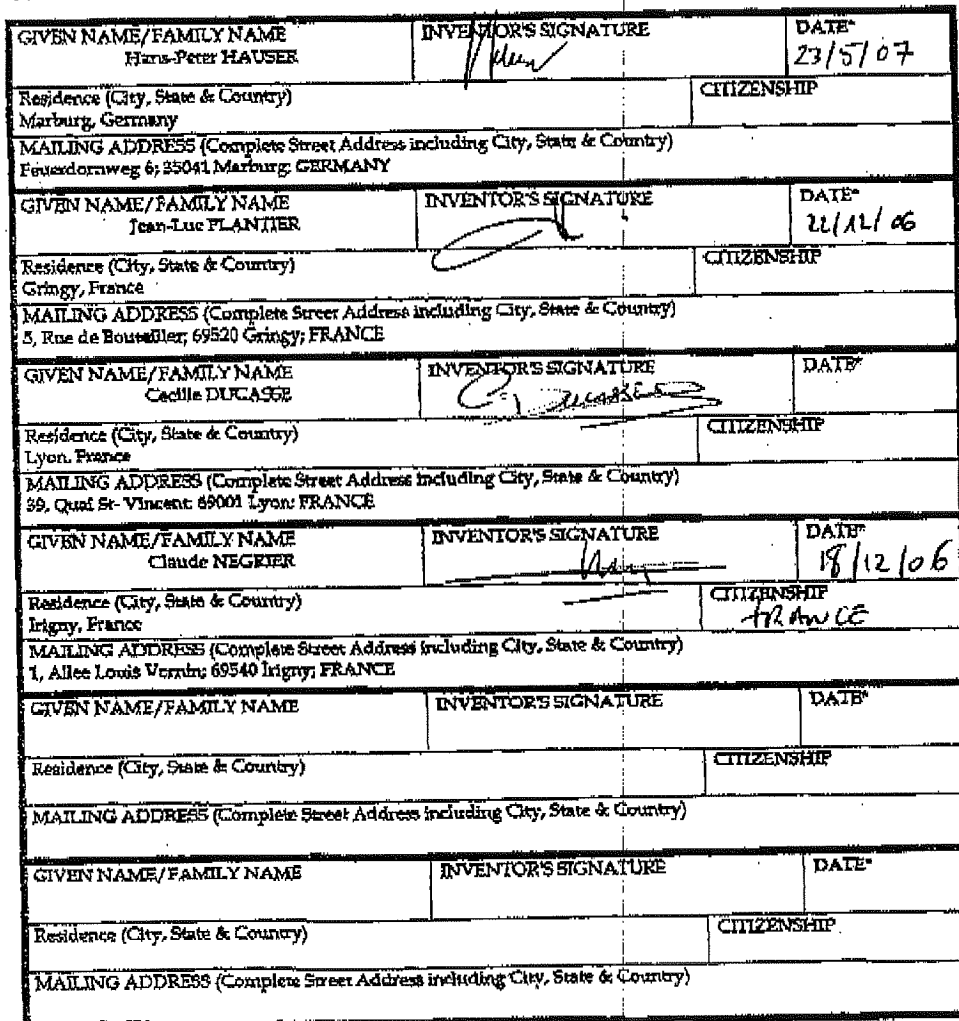 GIVEN NAME/FAMILY NAME INVENTOR'S SIGNATURE DATE*
Hans-Peter HAUSER 23/5/07
Residence (City, State & Country) CITIZENSHIP
Marburg, Germany
MAILING ADDRESS (Complete Street Address including City, State & Country)
Feuerdornweg 6; 35041 Marburg; GERMANY
GIVEN NAME/FAMILY NAME INVENTOR'S SIGNATURE DATE*
Jean-Luc PLANTIER 22/12/06
Residence (City, State & Country) CITIZENSHIP
Gringy, France
MAILING ADDRESS (Complete Street Address including City, State & Country)
5, Rue de Bouteiller; 69520 Gringy; FRANCE
GIVEN NAME/FAMILY NAME INVENTOR'S SIGNATURE DATE*
Cecille DUCASSE C. DUCASSE
Residence (City, State & Country) CITIZENSHIP
Lyon, France
MAILING ADDRESS (Complete Street Address including City, State & Country)
39, Quai St-Vincent; 69001 Lyon; FRANCE
GIVEN NAME/FAMILY NAME INVENTOR'S SIGNATURE DATE*
Claude NEGRIER 18/12/06
Residence (City, State & Country) CITIZENSHIP
Irigny, France FRANCE
MAILING ADDRESS (Complete Street Address including City, State & Country)
1, Allee Louis Vernin; 69540 Irigny; FRANCE
GIVEN NAME/FAMILY NAME INVENTOR'S SIGNATURE DATE*
Residence (City, State & Country) CITIZENSHIP
MAILING ADDRESS (Complete Street Address including City, State & Country)
GIVEN NAME/FAMILY NAME INVENTOR'S SIGNATURE DATE*
Residence (City, State & Country) CITIZENSHIP
MAILING ADDRESS (Complete Street Address including City, State & Country)